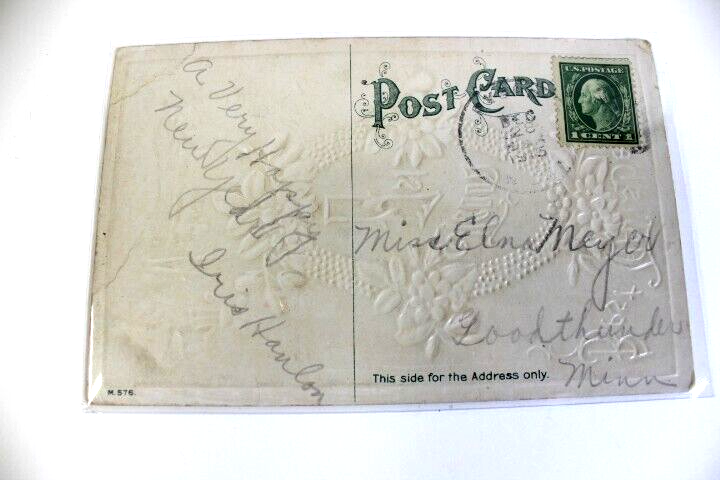 a Very Happy
New Year
Iris Hanlon
M. 576.
POST CARD
U.S. POSTAGE
1 CENT 1
Miss Elna Meyer
Goodthunder
Minn
This side for the Address only.